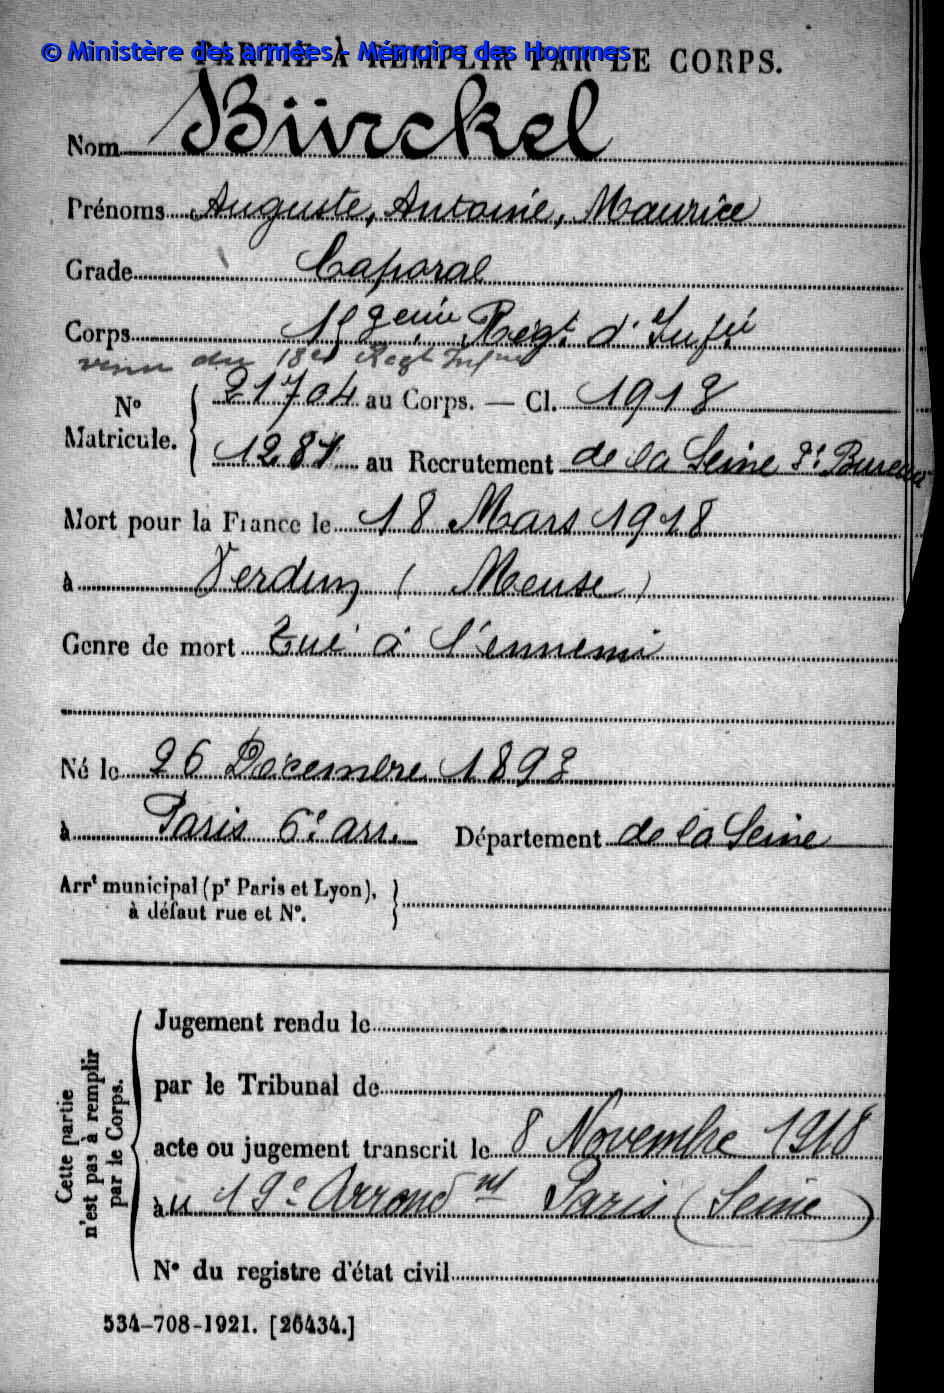 © Ministère des armées - Mémoire des Hommes
PARTIE À REMPLIR PAR LE CORPS.
Nom Bürckel
Prénoms Auguste, Antoine, Maurice
Grade Caporal
Corps Régt d'Infie
venu du 18e Regt Infrie
No Matricule. { 21704 au Corps. — Cl. 1918
1281 au Recrutement de la Seine Bureau
Mort pour la France le 18 Mars 1918
à Verdun (Meuse)
Genre de mort Tué à l'ennemi
Né le 26 Décembre 1898
à Paris 6e arr. Département de la Seine
Arrt municipal (pr Paris et Lyon),
à défaut rue et No.
Cette partie n'est pas à remplir par le Corps.
Jugement rendu le
par le Tribunal de
acte ou jugement transcrit le 8 Novembre 1918
au 19e Arrondnt Paris (Seine)
No du registre d'état civil
534-708-1921. [26434.]